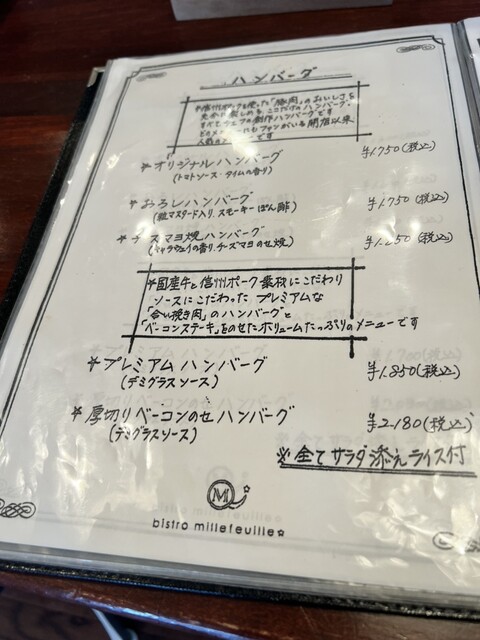 ハンバーグ
※信州ポークを使った「豚肉」のおいしさを
ここだけのハンバーグ
すべてシェフの創作ハンバーグです
ファンがいる開店以来
人気の です
＊オリジナルハンバーグ ¥1.750(税込)
(トマトソース・タイムの香り)
＊おろしハンバーグ ¥1.750(税込)
(粒マスタード入り、スモーキーぽん酢)
＊チーズマヨ焼ハンバーグ (税込)
(キャラウェイの香り、チーズマヨのせ焼)
＊国産牛と信州ポーク素材にこだわり
ソースにこだわった プレミアムな
「合い挽き肉」のハンバーグと
「ベーコンステーキ」をのせたボリュームたっぷりのメニューです
＊プレミアムハンバーグ ¥1.850(税込)
(デミグラスソース)
＊厚切りベーコンのせハンバーグ ¥2.180(税込)
(デミグラスソース)
※全てサラダ添えライス付
M
bistro millefeuille☆